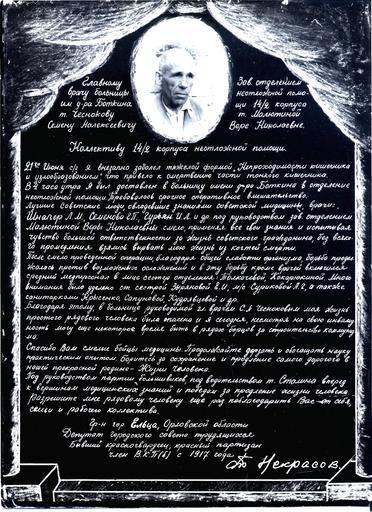 Главному
врачу больницы
им д-ра Боткина
т. Чеснокову
Семену Алексеевичу
Зав отделением
неотложной помо-
щи 14/2 корпуса
т. Малютиной
Вере Николаевне.
Коллективу 14/2 корпуса неотложной помощи.
21го Июня с/г Я внезапно заболел тяжелой формой „Непроходимости кишечника
и узлобразования", что привело к омертвению части тонкого кишечника.
В 4 часа утра Я был доставлен в больницу имени д-ра Боткина в отделение
неотложной помощи. Требовалось срочное оперативное вмешательство.
Лучшие советские люди овладевшие знаниями советской медицины, врачи:
Шнапер Л.М., Семенова Е.Т., Гурьян И.Л. и др под руководством зав отделением
Малютиной Веры Николаевны смело применяя все свои знания и испытывая
чувство большой ответственности за жизнь советского гражданина без всяко-
го промедления времени вырвали мою жизнь из когтей смерти.
После смело проведенной операции благодаря общей слабости организма, борьба продол-
жалась против возможных осложнений и в эту борьбу кроме врачей включился
средний медперсонал в лице сестры отделения: Макаровой. Исключительно много
внимания было уделено со сестрой Зерновой В.И., м/с Суриковой А.Е., а также
санитарками Борисенко, Сапуновой, Кудрявцевой и др.
Благодаря этому в больнице руководимой гл. врачем С.А Чесноковым моя жизнь
простого рядового человека была спасена и Я сегодня, несмотря на свою инвалид-
ность могу еще некоторое время быть в рядах борцов за строительство коммуниз-
ма.
Спасибо Вам смелые бойцы медицины. Продолжайте дерзать и обогащать науку
практическим опытом. Боритесь за сохранение и продление самого дорогого в
нашей прекрасной родине - Жизни Человека.
Под руководством партии большевиков под водительством т. Сталина вперед
к вершинам медицинских знаний и победам за продление жизни человека.
Разрешите мне рядовому человеку еще раз поблагодарить Вас от себя,
семьи и рабочего коллектива.
Гр-н гор. Ельца, Орловской области
Депутат городского совета трудящихся
Бывший красногвардеец, красный партизан
член В.К.П(б) с 1917 года
Некрасов/